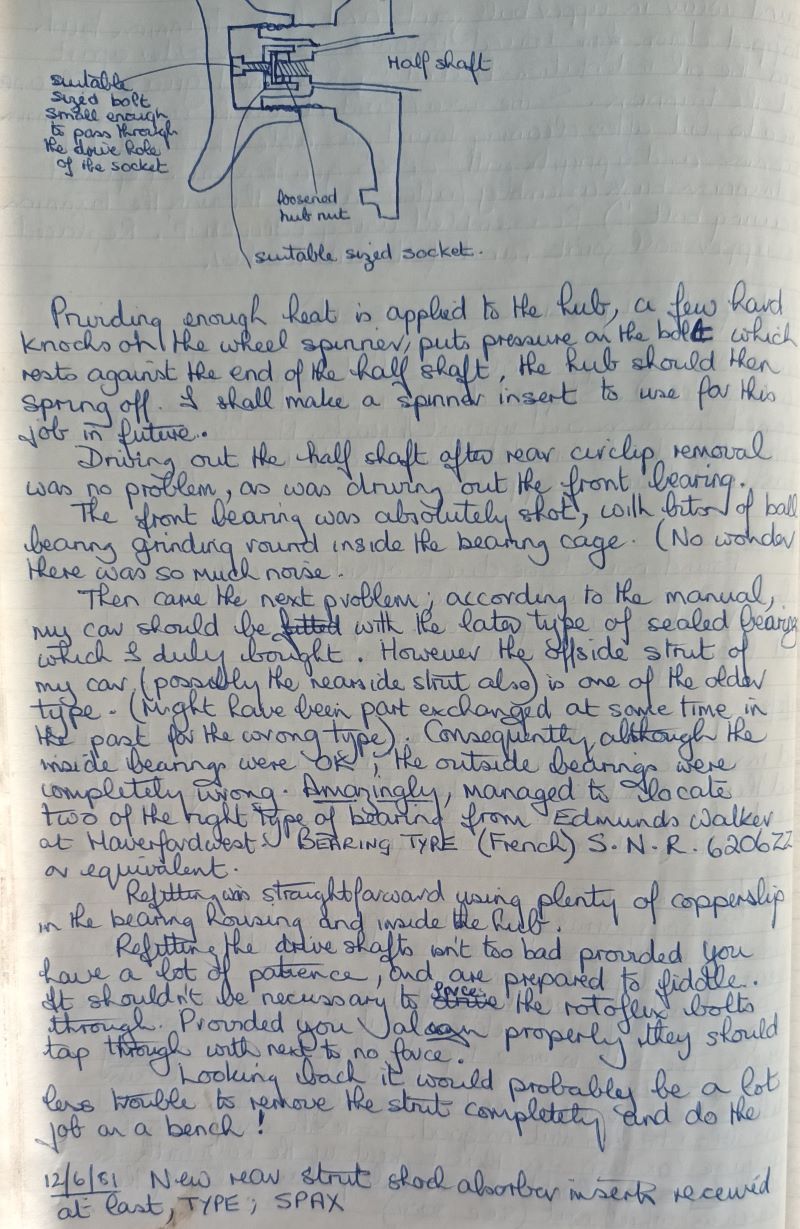 Half shaft
suitable
sized bolt
small enough
to pass through
the drive hole
of the socket
loosened
hub nut
suitable sized socket.
Providing enough heat is applied to the hub, a few hard
knocks on the wheel spinner, puts pressure on the bolt which
rests against the end of the half shaft, the hub should then
spring off. I shall make a spinner insert to use for this
job in future.
Driving out the half shaft after rear circlip removal
was no problem, as was driving out the front bearing.
The front bearing was absolutely shot, with bits of ball
bearing grinding round inside the bearing cage. (No wonder
there was so much noise.
Then came the next problem; according to the manual,
my car should be fitted with the later type of sealed bearing
which I duly bought. However the offside strut of
my car, (possibly the nearside strut also) is one of the older
type. (Might have been part exchanged at some time in
the past for the wrong type). Consequently, although the
inside bearings were OK; the outside bearings were
completely wrong. Amazingly, managed to locate
two of the right type of bearing from Edmunds Walker
at Haverfordwest:- BEARING TYPE (French) S.N.R. 6206ZZ
or equivalent.
Refitting was straightforward using plenty of copperslip
in the bearing housing and inside the hub.
Refitting the drive shafts isn't too bad provided you
have a lot of patience, and are prepared to fiddle.
It shouldn't be necussary to force the rotoflex bolts
through. Provided you align properly they should
tap through with next to no force.
Looking back it would probably be a lot
less trouble to remove the strut completely and do the
job on a bench!
12/6/81 New rear strut shock absorber inserts received
at last, TYPE; SPAX